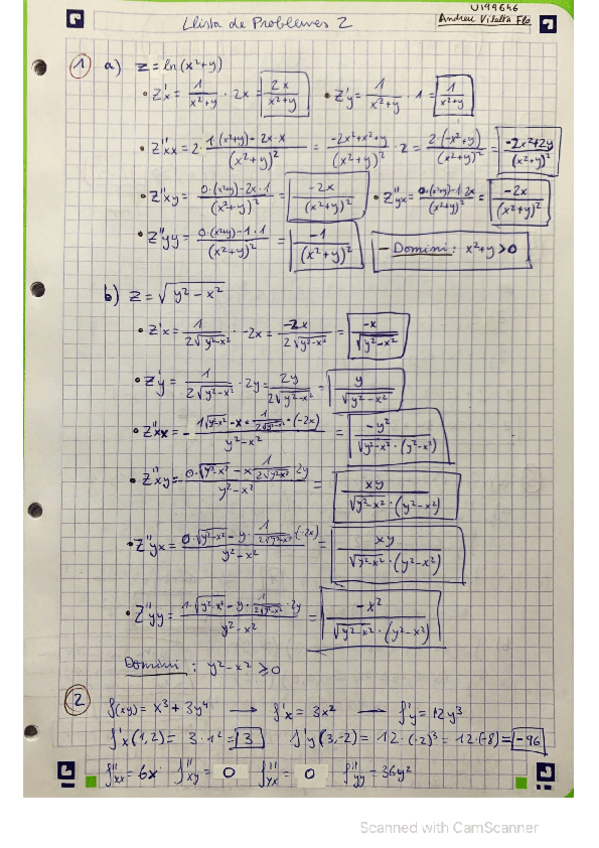 U199646
Llista de Problemes 2
Andreu Vilalta Flo
1 a) z = ln(x²+y)
• Z'x = 1/(x²+y) · 2x = 2x/(x²+y) • Z'y = 1/(x²+y) · 1 = 1/(x²+y)
• Z''xx = 2 · (1·(x²+y) - 2x·x)/(x²+y)² = (-2x²+x²+y)/(x²+y)² · 2 = 2·(-x²+y)/(x²+y)² = (-2x²+2y)/(x²+y)²
• Z''xy = (0·(x²+y) - 2x·1)/(x²+y)² = -2x/(x²+y)² • Z''yx = (0·(x²+y) - 1·2x)/(x²+y)² = -2x/(x²+y)²
• Z''yy = (0·(x²+y) - 1·1)/(x²+y)² = -1/(x²+y)² - Domini: x²+y > 0
b) z = √(y²-x²)
• Z'x = 1/(2√(y²-x²)) · -2x = -2x/(2√(y²-x²)) = -x/√(y²-x²)
• Z'y = 1/(2√(y²-x²)) · 2y = 2y/(2√(y²-x²)) = y/√(y²-x²)
• Z''xx = - (1√(y²-x²) - x · 1/(2√(y²-x²)) · (-2x))/(y²-x²) = -y²/(√(y²-x²) · (y²-x²))
• Z''xy = - (0·√(y²-x²) - x · 1/(2√(y²-x²)) · 2y)/(y²-x²) = xy/(√(y²-x²) · (y²-x²))
• Z''yx = (0·√(y²-x²) - y · 1/(2√(y²-x²)) · (-2x))/(y²-x²) = xy/(√(y²-x²) · (y²-x²))
• Z''yy = (1·√(y²-x²) - y · 1/(2√(y²-x²)) · 2y)/(y²-x²) = -x²/(√(y²-x²) · (y²-x²))
Domini: y²-x² ⩾ 0
2 f(xy) = x³ + 3y⁴ → f'x = 3x² → f'y = 12y³
f'x(1,2) = 3·1² = 3 f'y(3,-2) = 12·(-2)³ = 12·(-8) = -96
f''xx = 6x f''xy = 0 f''yx = 0 f''yy = 36y²
Scanned with CamScanner